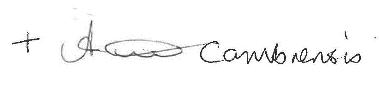 + A Cambrensis